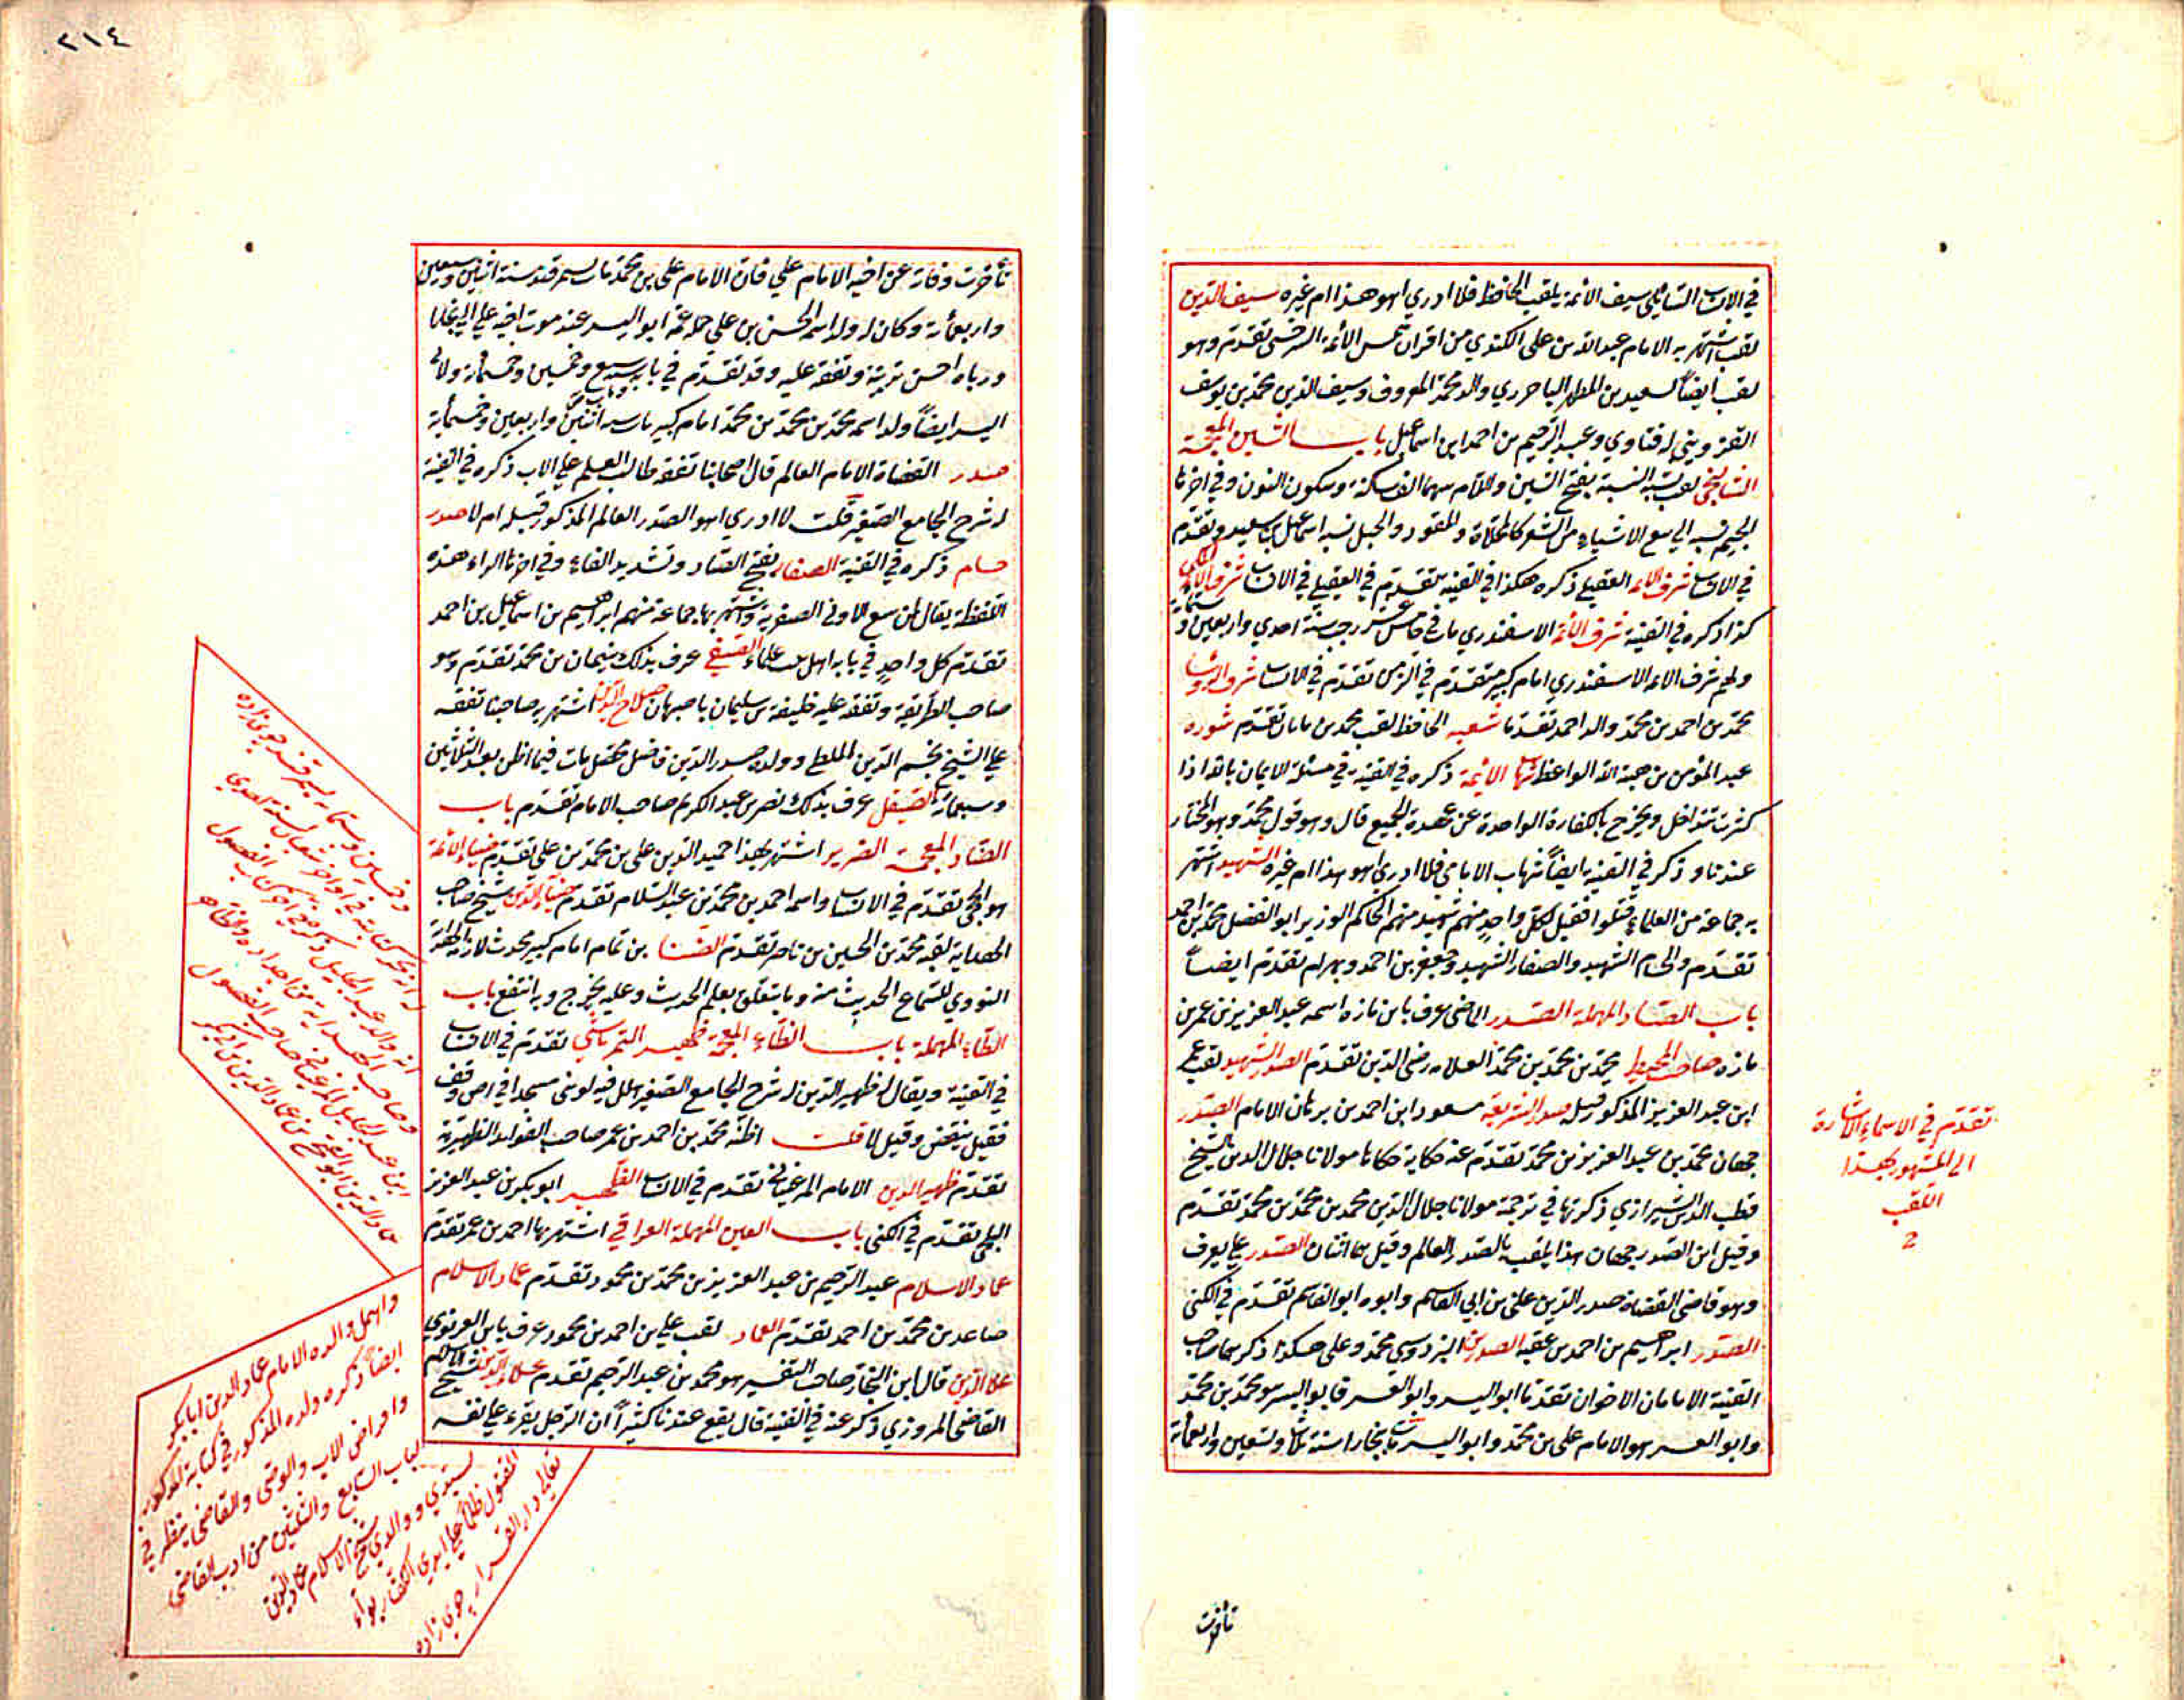 في الانساب السائلي سيف الأئمة يلقب الحافظ فلا ادري اهو هذا ام غيره سيف الدين
لقب اشتهر به الامام عبد الله بن علي الكندي من اقران شمس الأئمة السرخسي تقدم وهو
لقب ايضاً لسعيد بن المطهر الباخرزي والد محمد المعروف وسيف الدين محمد بن يوسف
القزويني له فتاوي وعبد الرحيم بن احمد ابن اسماعيل باب الشين المعجمة
الشالنجي لقب يشبه النسبة بفتح الشين واللام بينهما الف ساكنة وسكون النون وفي اخرها
الجيم نسبة الي بيع الاشياء من الشعر كالمخلاة والمقود والحبل نسبة اسماعيل بن سعيد وتقدم
في الانساب شرف الائمة العقيلي ذكره هكذا في القنية تقدم في العقيلي في الانساب شرف الأئمة المكي
كذا ذكره في القنية شرف الأئمة الاسفندري مات في خامس عشر رجب سنة احدي واربعين وستمائة
ولهم شرف الائمة الاسفندري امام كبير متقدم في الزمن تقدم في الانساب شرف الرؤسا
محمد بن احمد بن محمد والد احمد تقدما شعبه الحافظ لقب محمد بن ماهان تقدم شوروه
عبد المؤمن بن هبة الله الواعظ شهاب الأئمة ذكره في القنية في مسئلة الايمان بالله اذا
كثرت تتداخل ويخرج بالكفارة الواحدة عن عهدة الجميع قال وهو قول محمد وهو المختار
عندنا وذكر في القنية ايضاً شهاب الامامي فلا ادري اهو هذا ام غيره الشهيد اشتهر
به جماعة من العلماء قتلوا فقيل لكل واحد منهم شهيد منهم الحاكم الوزير ابو الفضل محمد بن احمد
تقدم والحسام الشهيد والصفار الشهيد وجعفر بن احمد وبهرام تقدم ايضاً
باب الصاد المهملة الصدر الماضي عرف بابن مازه اسمه عبد العزيز بن عمر بن
مازه صاحب المحيط محمد بن محمد بن محمد العلا رضي الدين تقدم الصدر الشهيد لقب عمر
ابن عبد العزيز المذكور قبله صدر الشريعة مسعود ابن احمد بن برهان الامام الصدر
جهان محمد بن عبد العزيز بن محمد تقدم عنه حكاية حكاها مولانا جلال الدين للشيخ
قطب الدين الشيرازي ذكرتها في ترجمة مولانا جلال الدين محمد بن محمد بن محمد تقدم
وقيل ابن الصدر جهان هذا يلقب بالصدر العالم وقيل هما اثنان الصدر علي يعرف
وهو قاضي القضاة صدر الدين علي بن ابي القاسم وابوه ابو القاسم تقدم في الكنى
الصدر ابراهيم بن احمد بن عقبه الصدرين البزدوي محمد وعلي هكذا ذكرهما صاحب
القنية الامامان الاخوان تقدما ابو اليسر وابو العسر فابو اليسر هو محمد بن محمد
وابو العسر هو الامام علي بن محمد وابو اليسر مات ببخارا سنة ثلاث وتسعين واربعمأة
تأخرت
تقدم في الاسماء الاشارة
الى المشهور بهذا
اللقب
٢١٤
تأخرت وفاته عن اخيه الامام علي فان الامام علي بن محمد مات بسمرقند سنة اثنين وسبعين
واربعمأة وكان له ولد اسمه الحسن بن علي حمله عمه ابو اليسر عند موت اخيه علي الي بخارا
ورباه احسن تربية وتفقه عليه وقد تقدم في بابه سنة سبع وخمسين وخمسمأة ولابي
اليسر ايضاً ولد اسمه محمد بن محمد بن محمد امام كبير مات سنة اثنتين واربعين وخمسمأية
صدر القضاة الامام العالم قال اصحابنا تفقه طالب العلم علي الاب ذكره في القنية
له شرح الجامع الصغير قلت لا ادري اهو الصدر العالم المذكور قبله ام لا صدر
حسام ذكره في القنية الصفار بفتح الصاد وتشديد الفاء وفي اخرها الراء هذه
اللفظة يقال لمن يبيع الاواني الصفرية واشتهر بها جماعة منهم ابراهيم بن اسماعيل بن احمد
تقدم كل واحد في بابه اهل بيت علماء الصيفي عرف بذلك سليمان بن محمد تقدم وهو
صاحب الطريقة وتفقه عليه خليفة بن سليمان باصبهان صلاح الدين اشتهر به صاحبنا تفقه
علي الشيخ نجم الدين الملطي وولده صدر الدين فاضل محصل مات فيما اظن بعد الثلاثين
وسبعمأة الصيقل عرف بذلك نصر بن عبد الكريم صاحب الامام تقدم باب
الضاد المعجمة الضرير اشتهر بهذا حميد الدين علي بن محمد بن علي تقدم ضياء الأئمة
هو الحجي تقدم في الانساب واسمه احمد بن محمد بن عبد السلام تقدم ضياء الدين شيخ صاحب
الهداية لقبه محمد بن الحسين بن ناصر تقدم الضيا بن تمام امام كبير محدث لازم الحافظ
النووي للسماع الحديث منه وما يتعلق بعلم الحديث وعليه يخرج وبه انتفع باب
الطاء المهملة باب الظاء المعجمة ظهير التمرتاشي تقدم في الانساب
في القنية ويقال له ظهير الدين له شرح الجامع الصغير اهلل فيه لو بنى مسجدا في ارض وقف
فقيل ينقض وقيل لا قلت اظنه محمد بن احمد بن عمر صاحب الفوايد الظهيرية
تقدم ظهير الدين الامام المرغيناني تقدم في الانساب الظهير ابو بكر بن عبد العزيز
البلخي تقدم في الكنى باب العين المهملة العراقي اشتهر بها احمد بن عمر تقدم
عماد الاسلام عبد الرحيم بن عبد العزيز بن محمد بن محمود تقدم عماد الاسلام
صاعد بن محمد بن احمد تقدم العماد لقب علي بن احمد بن محمود عرف بابن الغزنوي
علاء الدين قال ابن النجار صاحب التفسير هو محمد بن عبد الرحيم تقدم علاء الدين شيخ الاسلام
القاضي المروزي ذكر عنه في القنية قال يقع عندنا كثيراً ان الرجل يقرء علي نفسه
واهمل والده الامام عماد الدين ابا بكر
ايضاً ذكره ولده المذكور في كتابه المذكور
واقراض الاب والوصي والقاضي ينظر في
الباب السابع والثلثين من ادب القاضي
سيدي ووالدي شيخ الاسلام عماد الدين
المقتول ظلماً علي ايدي الكفار بوأه
تعالي دار القرار جوي زاده